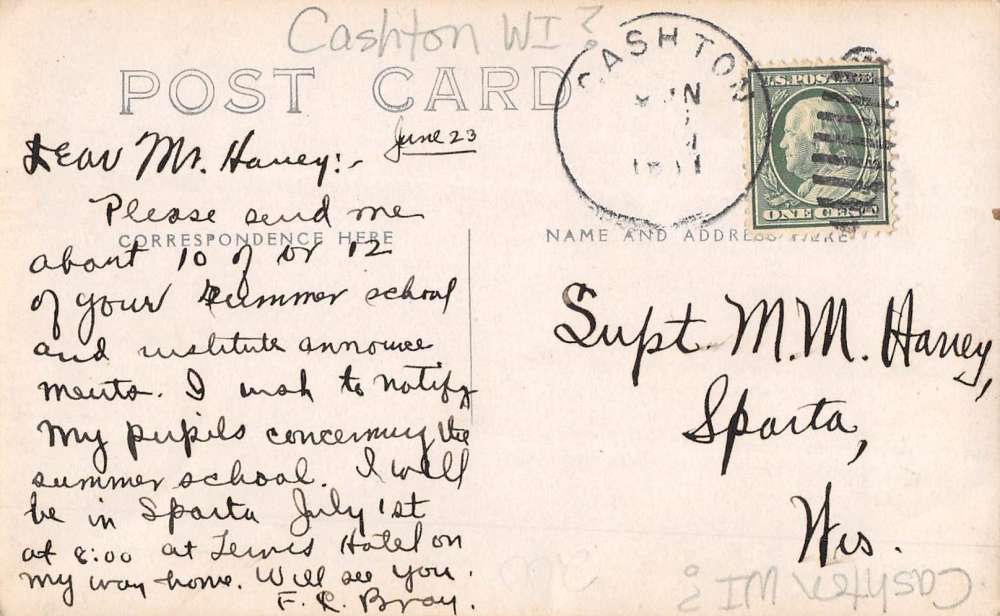 Cashton WI?
POST CARD
CASHTON
JUN
U.S. POSTAGE
ONE CENT
June 23
Dear Mr. Haney:-
Please send me
CORRESPONDENCE HERE
about 10 of or 12
of your summer school
and institute announce
ments. I wish to notify
my pupils concerning the
summer school. I will
be in Sparta July 1st
at 8:00 at Lewis Hotel on
my way home. Will see you.
F. R. Bray.
NAME AND ADDRESS HERE
Supt. M. M. Haney,
Sparta,
Wis.
Cashton WI?